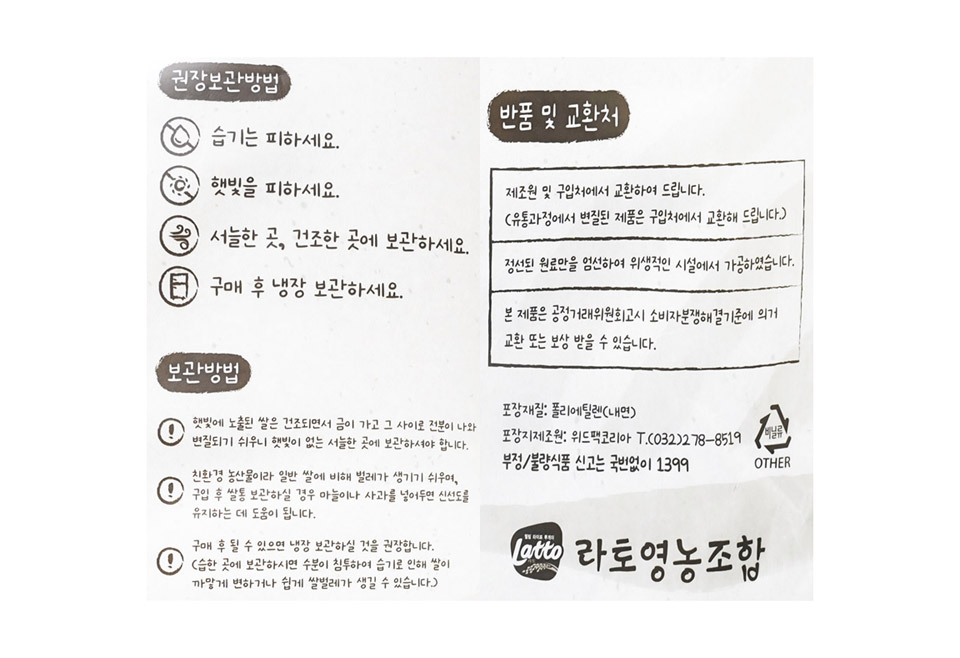 권장보관방법
습기는 피하세요.
햇빛을 피하세요.
서늘한 곳, 건조한 곳에 보관하세요.
구매 후 냉장 보관하세요.
보관방법
햇빛에 노출된 쌀은 건조되면서 금이 가고 그 사이로 전분이 나와
변질되기 쉬우니 햇빛이 없는 서늘한 곳에 보관하셔야 합니다.
친환경 농산물이라 일반 쌀에 비해 벌레가 생기기 쉬우며,
구입 후 쌀통 보관하실 경우 마늘이나 사과를 넣어두면 신선도를
유지하는 데 도움이 됩니다.
구매 후 될 수 있으면 냉장 보관하실 것을 권장합니다.
(습한 곳에 보관하시면 수분이 침투하여 습기로 인해 쌀이
까맣게 변하거나 쉽게 쌀벌레가 생길 수 있습니다.)
반품 및 교환처
제조원 및 구입처에서 교환하여 드립니다.
(유통과정에서 변질된 제품은 구입처에서 교환해 드립니다.)
정선된 원료만을 엄선하여 위생적인 시설에서 가공하였습니다.
본 제품은 공정거래위원회고시 소비자분쟁해결기준에 의거
교환 또는 보상 받을 수 있습니다.
포장재질: 폴리에틸렌(내면)
포장지제조원: 위드팩코리아 T.(032)278-8519
부정/불량식품 신고는 국번없이 1399
비닐류
OTHER
Latto
라토영농조합